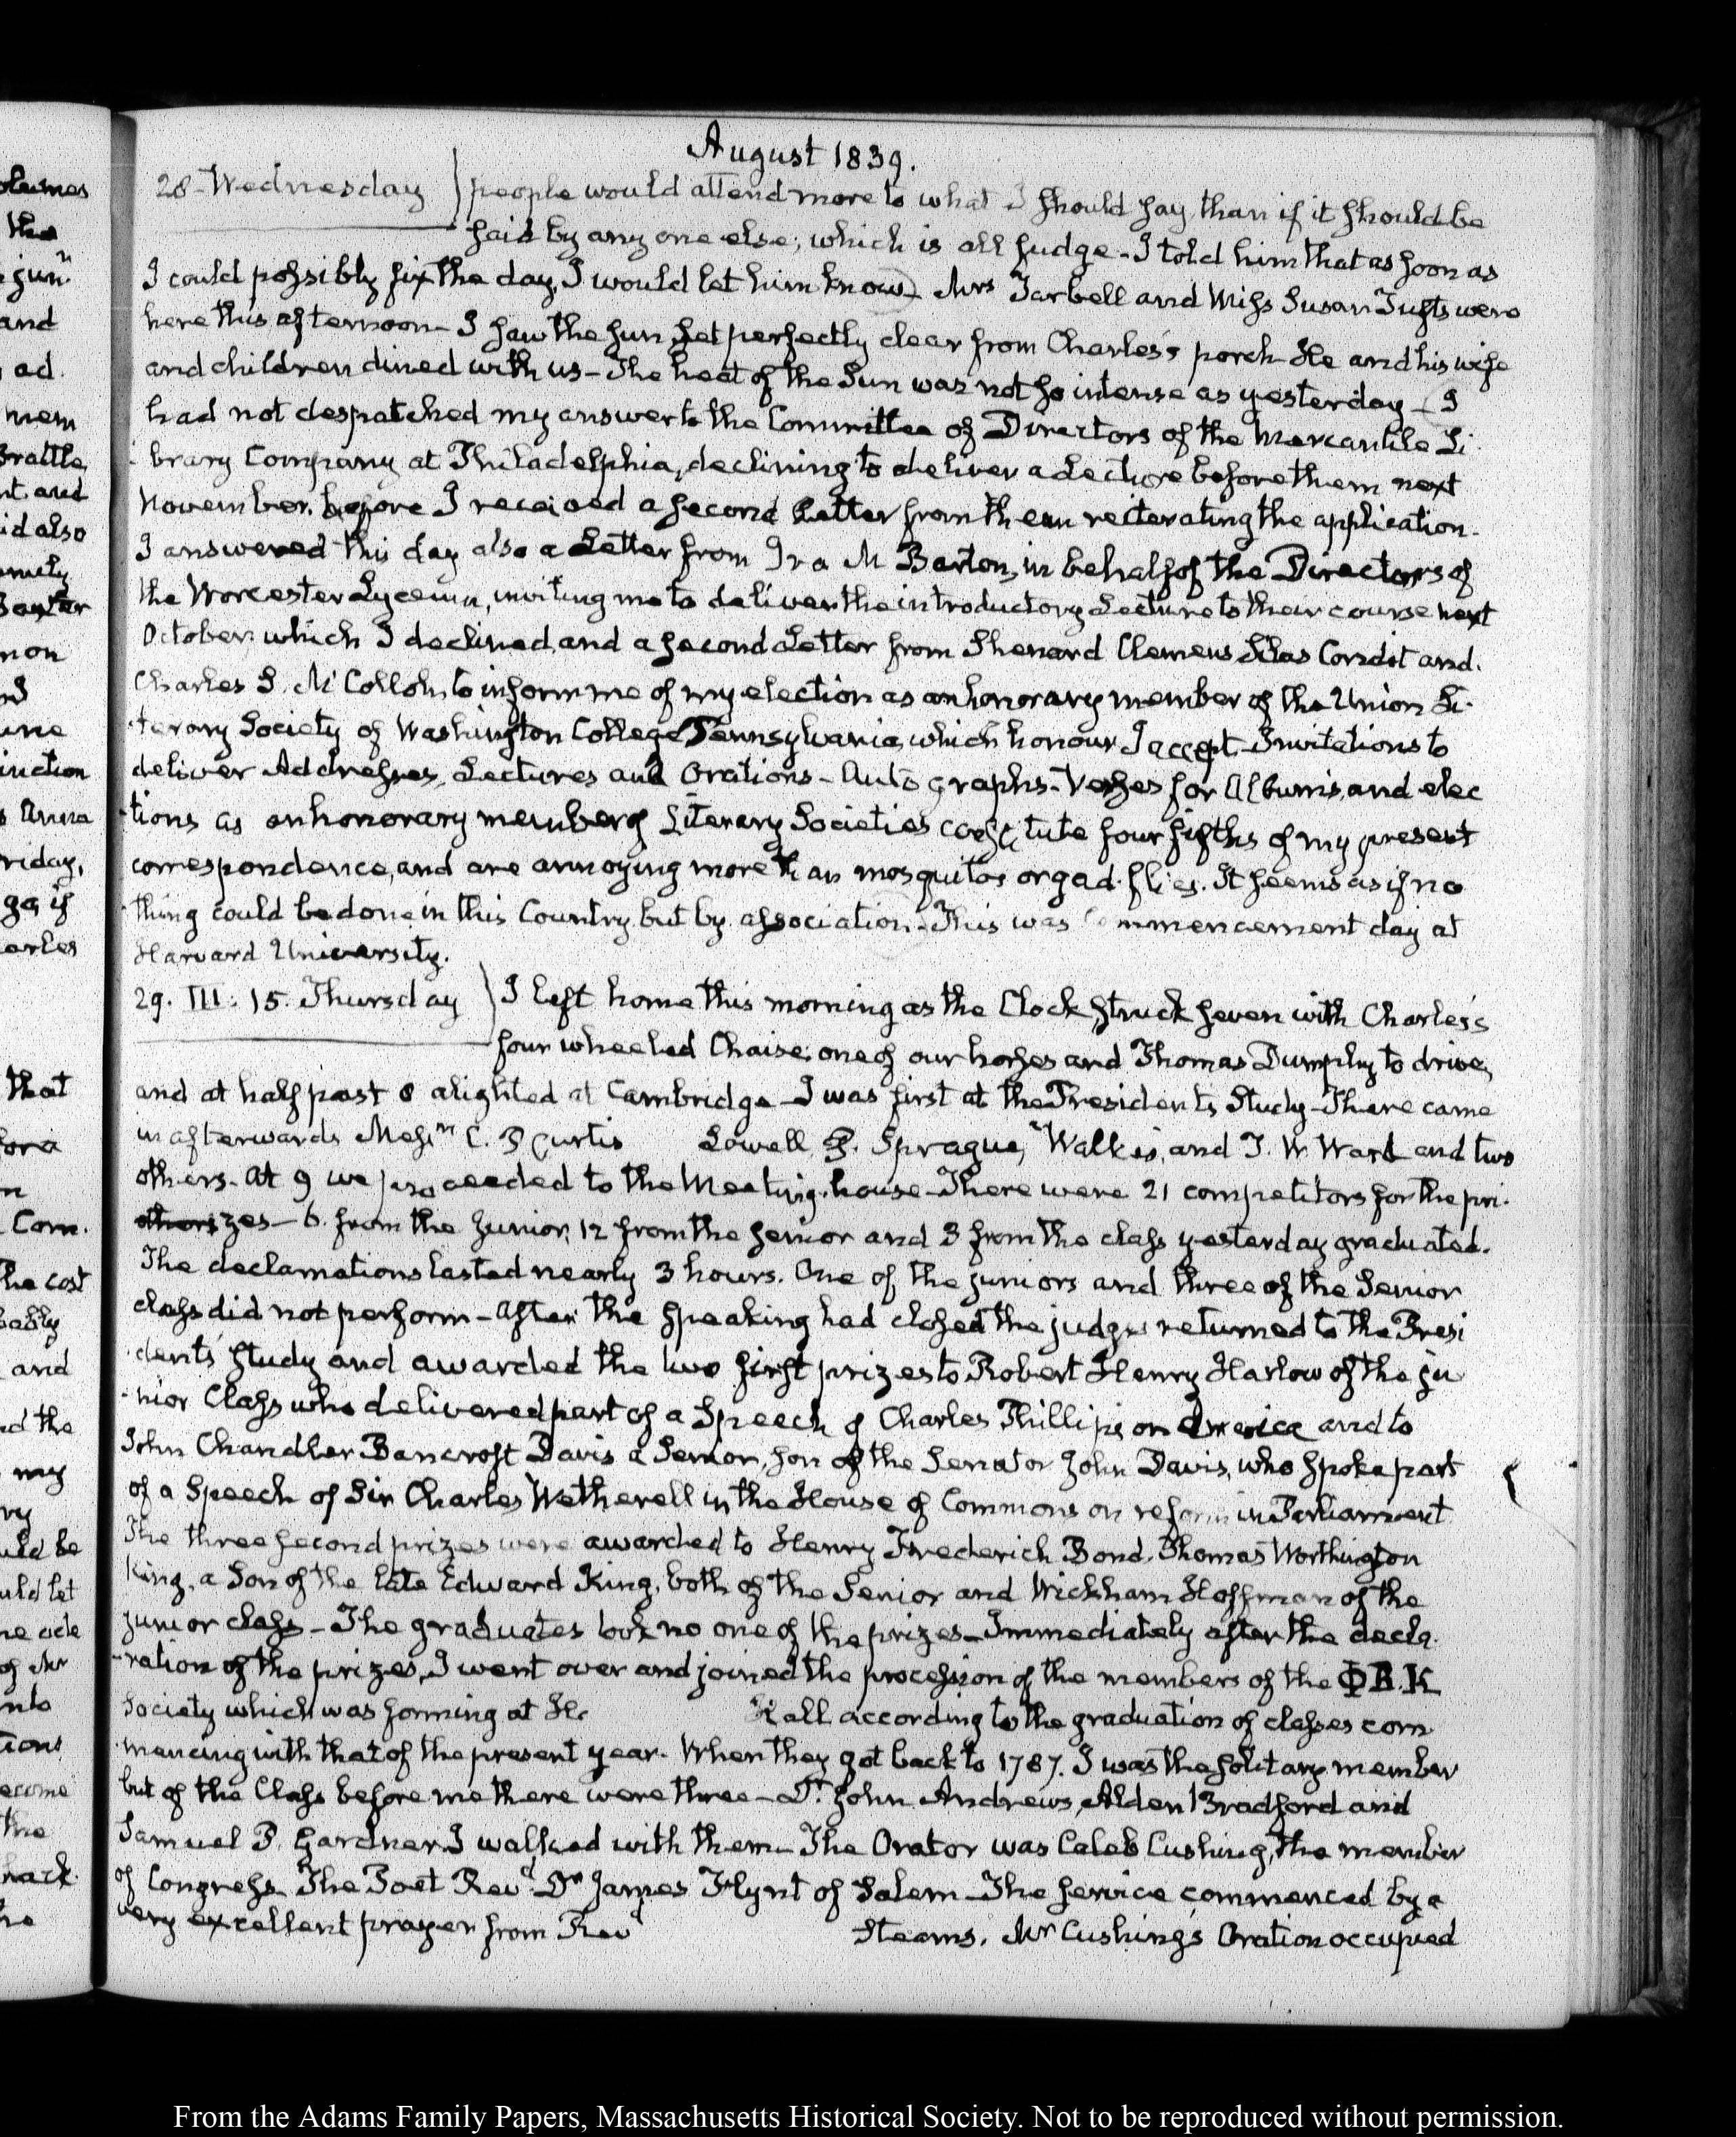 August 1839.
28-Wednesday people would attend more to what I should say than if it should be
said by any one else; which is all fudge - I told him that as soon as
I could possibly fix the day, I would let him know - Mrs Tarbell and Miss Susan Tufts were
here this afternoon - I saw the Sun set perfectly clear from Charles's porch - He and his wife
and children dined with us - The heat of the Sun was not so intense as yesterday - I
had not despatched my answer to the Committee of Directors of the Mercantile Li-
brary Company at Philadelphia, declining to deliver a Lecture before them next
November, before I received a second Letter from them reiterating the application.
I answered this day also a Letter from Ira M Barton, in behalf of the Directors of
the Worcester Lyceum, inviting me to deliver the introductory Lecture to their course next
October, which I declined, and a second Letter from Sherrard Clemens Silas Condit and.
Charles S. McColloh, to inform me of my election as an honorary member of the Union Li-
terary Society of Washington College Pennsylvania, which honour I accept - Invitations to
deliver Addresses, Lectures and Orations - Autographs - Verses for Albums, and elec
tions as an honorary member of Literary Societies constitute four fifths of my present
correspondence, and are annoying more than mosquitos or gad-flies. It seems as if no
thing could be done in this Country but by association - This was Commencement day at
Harvard University.
29. III: 15. Thursday I left home this morning as the Clock struck seven with Charles's
four wheeled Chaise; one of our horses and Thomas Dumphy to drive,
and at half past 8 alighted at Cambridge - I was first at the Presidents Study - There came
in afterwards Messrs C. P Curtis Lowell P. Sprague, Walker, and T. W. Ward and two
others - At 9 we proceeded to the Meeting-house - There were 21 competitors for the pri-
zes - 6. from the junior, 12 from the senior and 3 from the class yesterday graduated.
The declamations lasted nearly 3 hours. One of the juniors and three of the Senior
class did not perform - After the speaking had closed the judges returned to the Presi
dents Study and awarded the two first prizes to Robert Henry Harlow of the ju
nior Class who delivered part of a Speech of Charles Phillips on America and to
John Chandler Bancroft Davis a Senior, son of the Senator John Davis, who spoke part
of a Speech of Sir Charles Wetherell in the House of Commons on reform in Parliament
The three second prizes were awarded to Henry Frederick Bond, Thomas Worthington
King, a Son of the late Edward King, both of the Senior and Wickham Hoffman of the
junior class - The graduates took no one of the prizes - Immediately after the decla-
ration of the prizes, I went over and joined the procession of the members of the ΦB.K
Society which was forming at Ho Hall according to the graduation of classes com
mencing with that of the present year. When they got back to 1787. I was the solitary member
but of the Class before me there were three - Dr John Andrews, Alden Bradford and
Samuel P. Gardner. I walked with them - The Orator was Caleb Cushing, the member
of Congress - The Poet Revd Dr James Flynt of Salem - The service commenced by a
very excellent prayer from Revd Stearns. Mr Cushing's Oration occupied
From the Adams Family Papers, Massachusetts Historical Society. Not to be reproduced without permission.